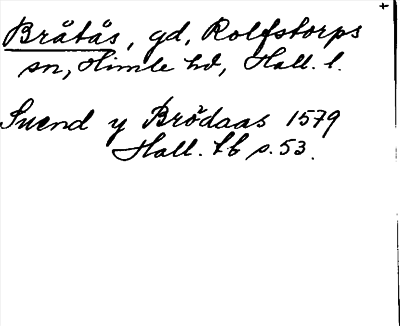 Bråtås, gd, Rolfstorps
sn, Himle hd, Hall. l.
Suend y Brödaas 1579
Hall. lb s. 53.